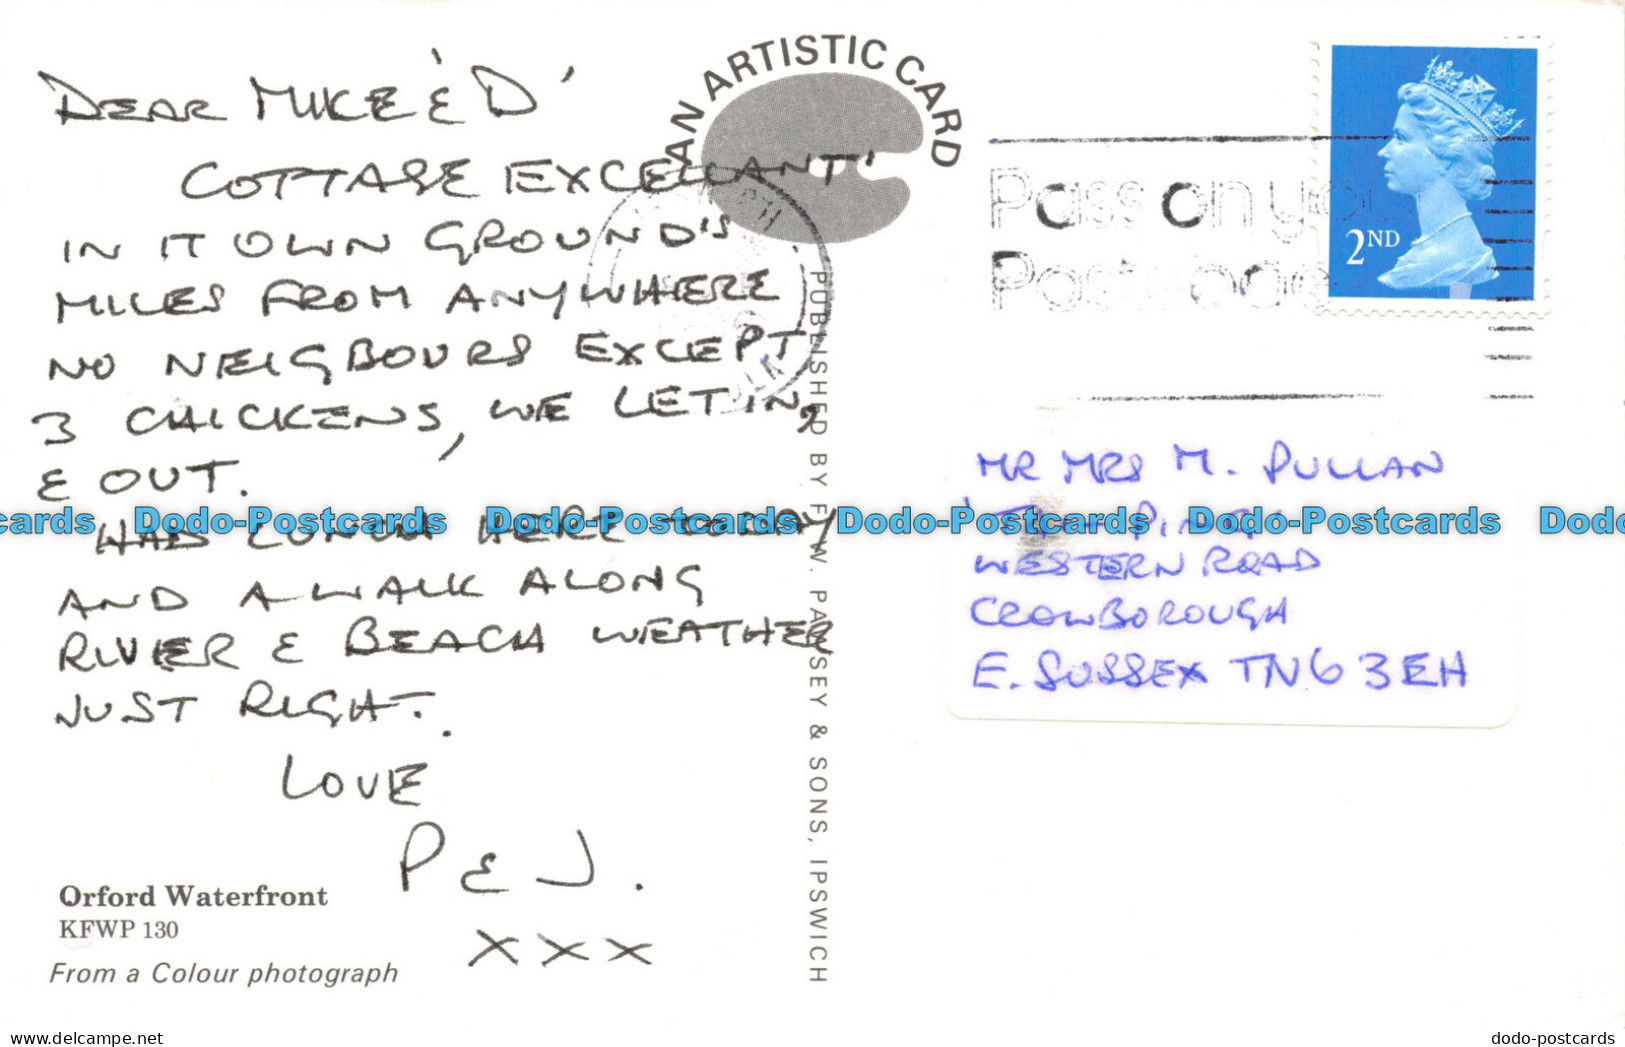 DEAR MIKE & 'D'
COTTAGE EXCELLANT'
IN IT OWN GROUND'S
MILES FROM ANYWHERE
NO NEIGBOURS EXCEPT
3 CHICKENS, WE LET IN,
& OUT.
HAD LUNCH HERE TODAY
AND A WALK ALONG
RIVER & BEACH WEATHER
JUST RIGHT.
LOVE
P & J.
XXX
Orford Waterfront
KFWP 130
From a Colour photograph
AN ARTISTIC CARD
PUBLISHED BY F. W. PAWSEY & SONS, IPSWICH
Pass on
Postcode
2ND
MR MRS M. PULLAN
PINES
WESTERN ROAD
CROWBOROUGH
E. SUSSEX TN6 3EH
cards Dodo-Postcards Dodo-Postcards Dodo-Postcards Dodo-Postcards Dodo
www.delcampe.net
dodo-postcards